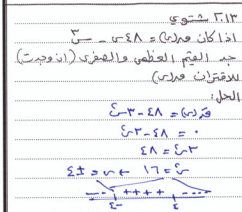 ٢٠١٣ شتوي
اذا كان ق(س) = ٤٨س - س٣
جد القيم العظمى والصغرى (ان وجدت)
للاقتران ق(س)
الحل:
قَ(س) = ٤٨ - ٣س٢
٠ = ٤٨ - ٣س٢
٣س٢ = ٤٨
س٢ = ١٦ ← س = ± ٤
--- ++++ ---
-٤ ٤